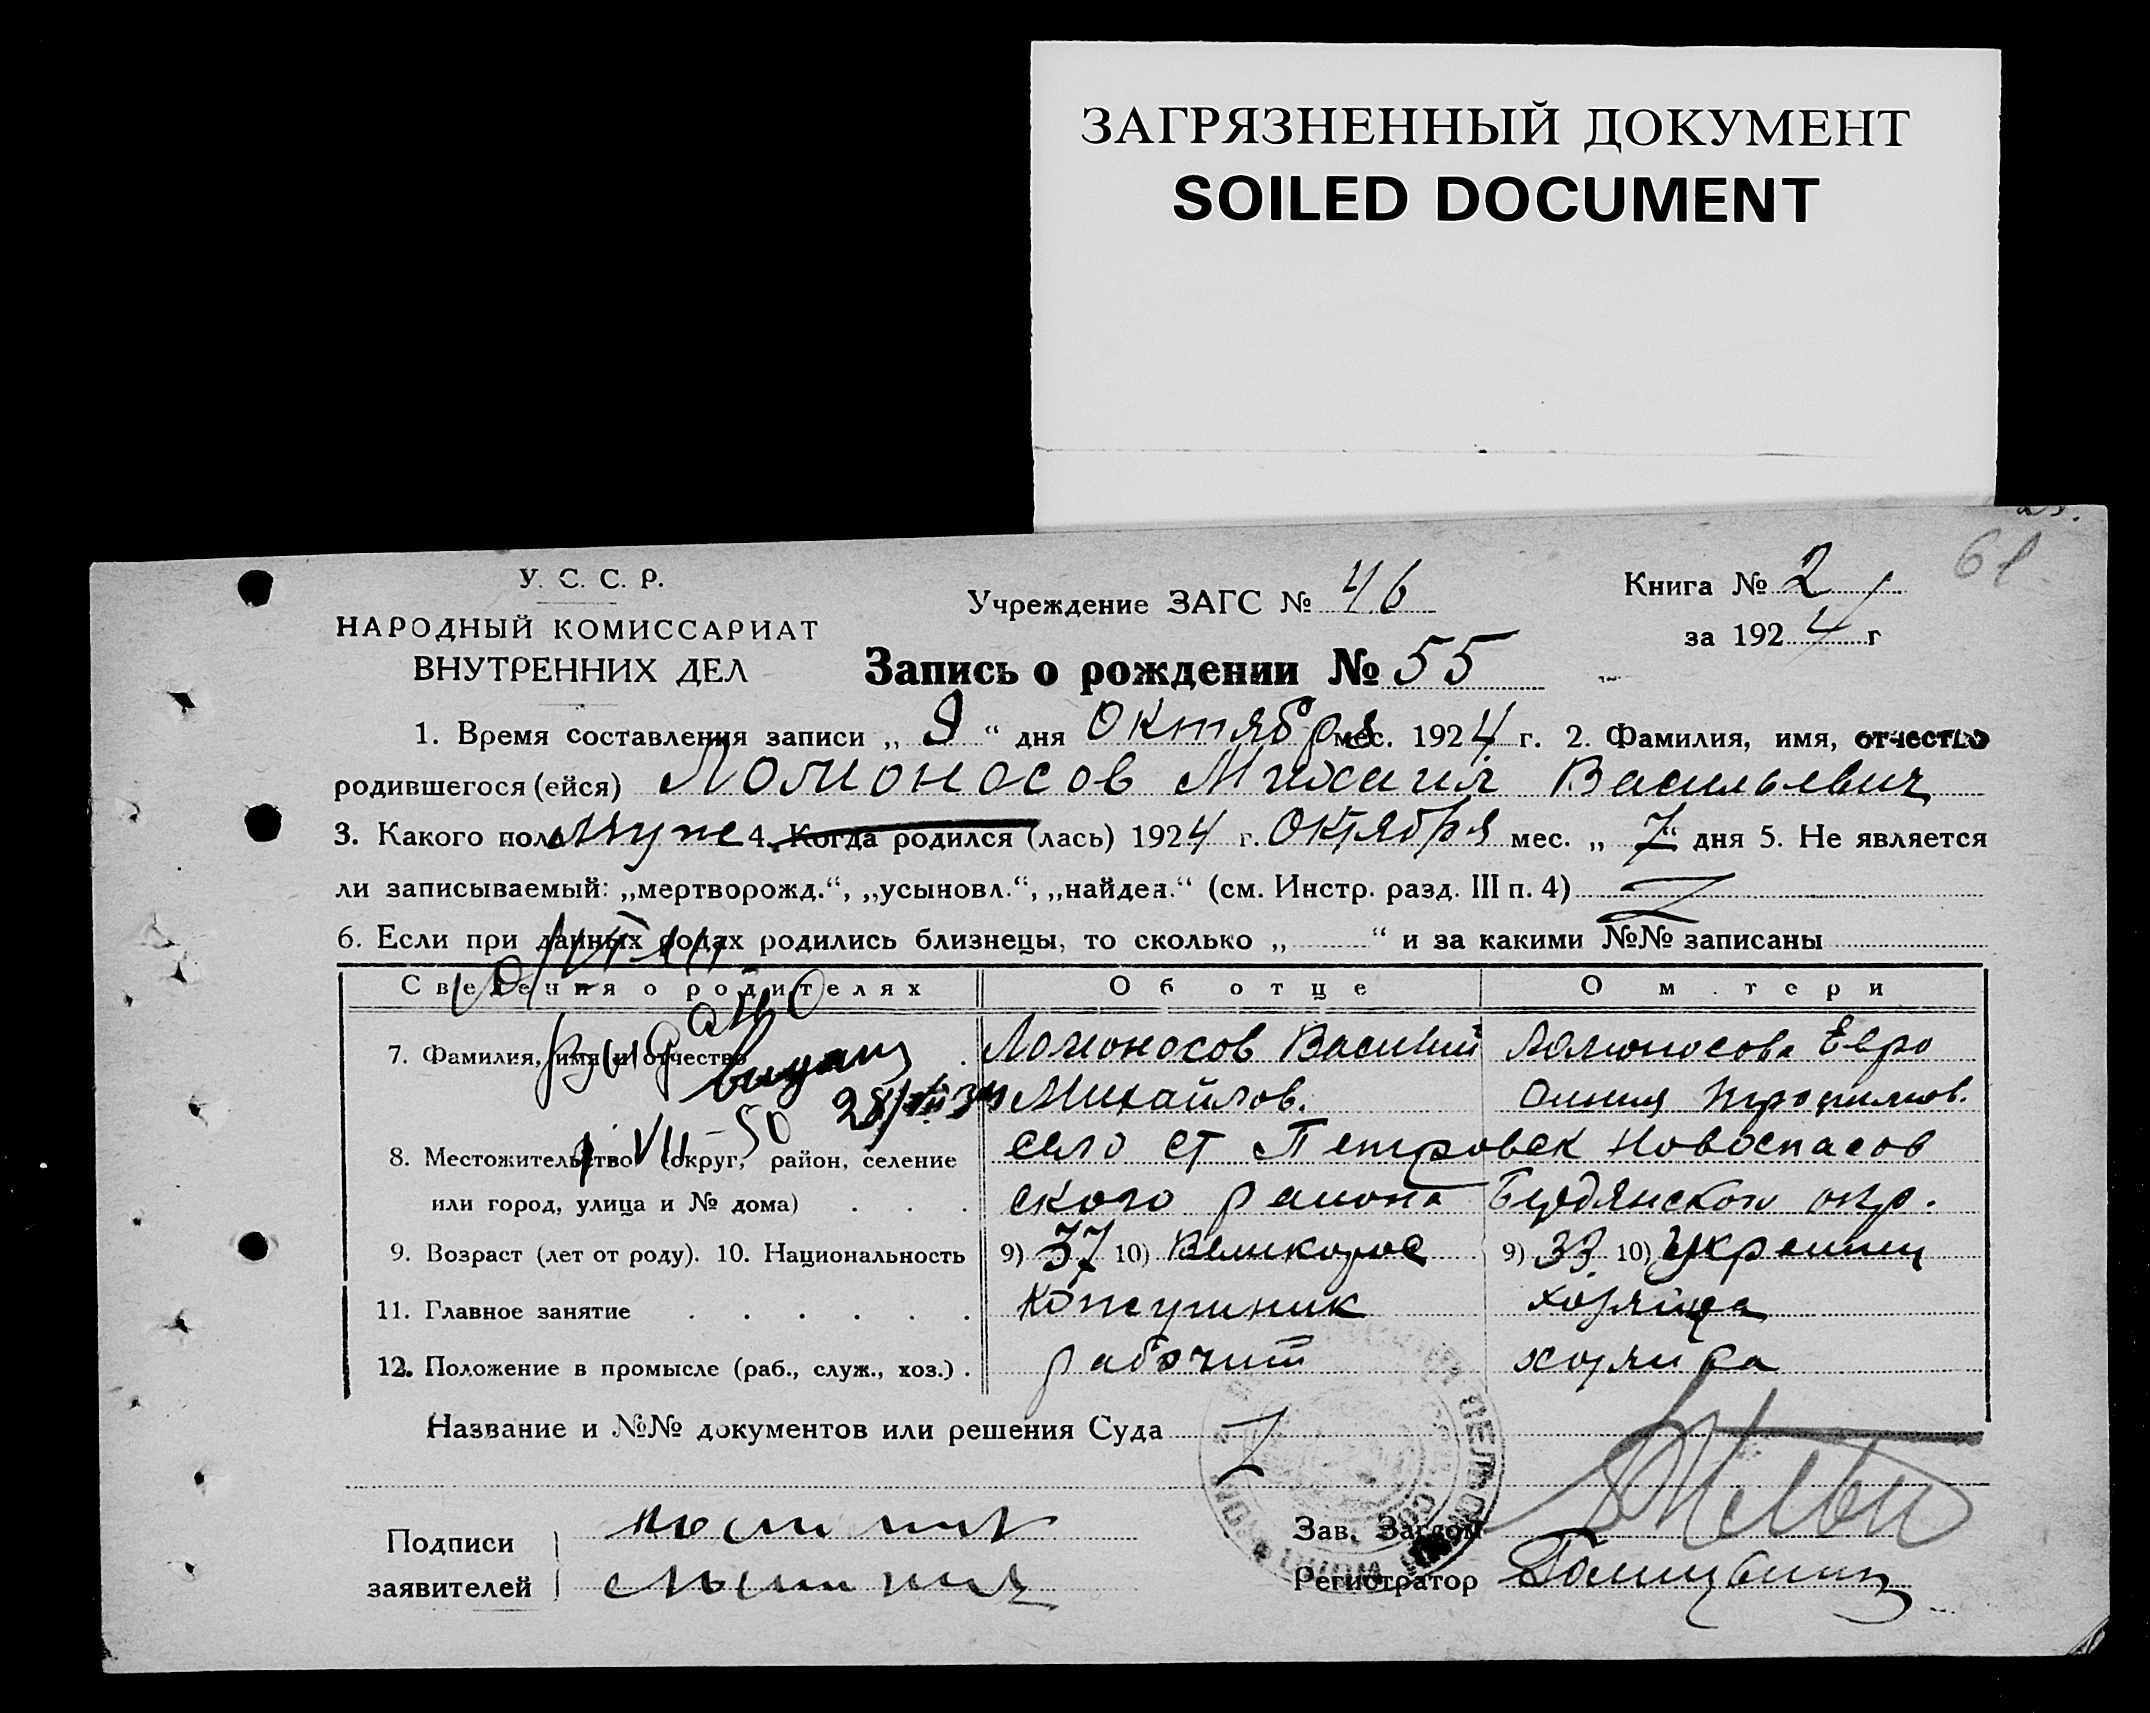 ЗАГРЯЗНЕННЫЙ ДОКУМЕНТ
SOILED DOCUMENT
61
У. С. С. Р.
НАРОДНЫЙ КОМИССАРИАТ
ВНУТРЕННИХ ДЕЛ
Учреждение ЗАГС № 46
Книга № 2
за 1924 г
Запись о рождении № 55
1. Время составления записи „ 9 “ дня Октября мес. 1924 г. 2. Фамилия, имя, отчество
родившегося (ейся) Ломоносов Михаил Васильевич
3. Какого пола муж 4. Когда родился (лась) 1924 г. Октября мес. „ 7 “ дня 5. Не является
ли записываемый: „мертворожд.“, „усыновл.“, „найден.“ (см. Инстр. разд. III п. 4)
6. Если при данных родах родились близнецы, то сколько „ “ и за какими №№ записаны
Сведения о родителях Об отце О матери
7. Фамилия, имя и отчество Ломоносов Василий Ломоносова Евро
Михайлов. синия Трофимов.
выдано
28/VII 34
VII-50
8. Местожительство (округ, район, селение село ст Петровск Новоспасов
или город, улица и № дома) ского района Бердянского окр.
9. Возраст (лет от роду). 10. Национальность 9) 37 10) Великорос 9) 33 10) Украинц
11. Главное занятие Кожушник хозяйка
12. Положение в промысле (раб., служ., хоз.) рабочий хозяйка
Название и №№ документов или решения Суда
Подписи
заявителей
Зав. Загсом
Регистратор